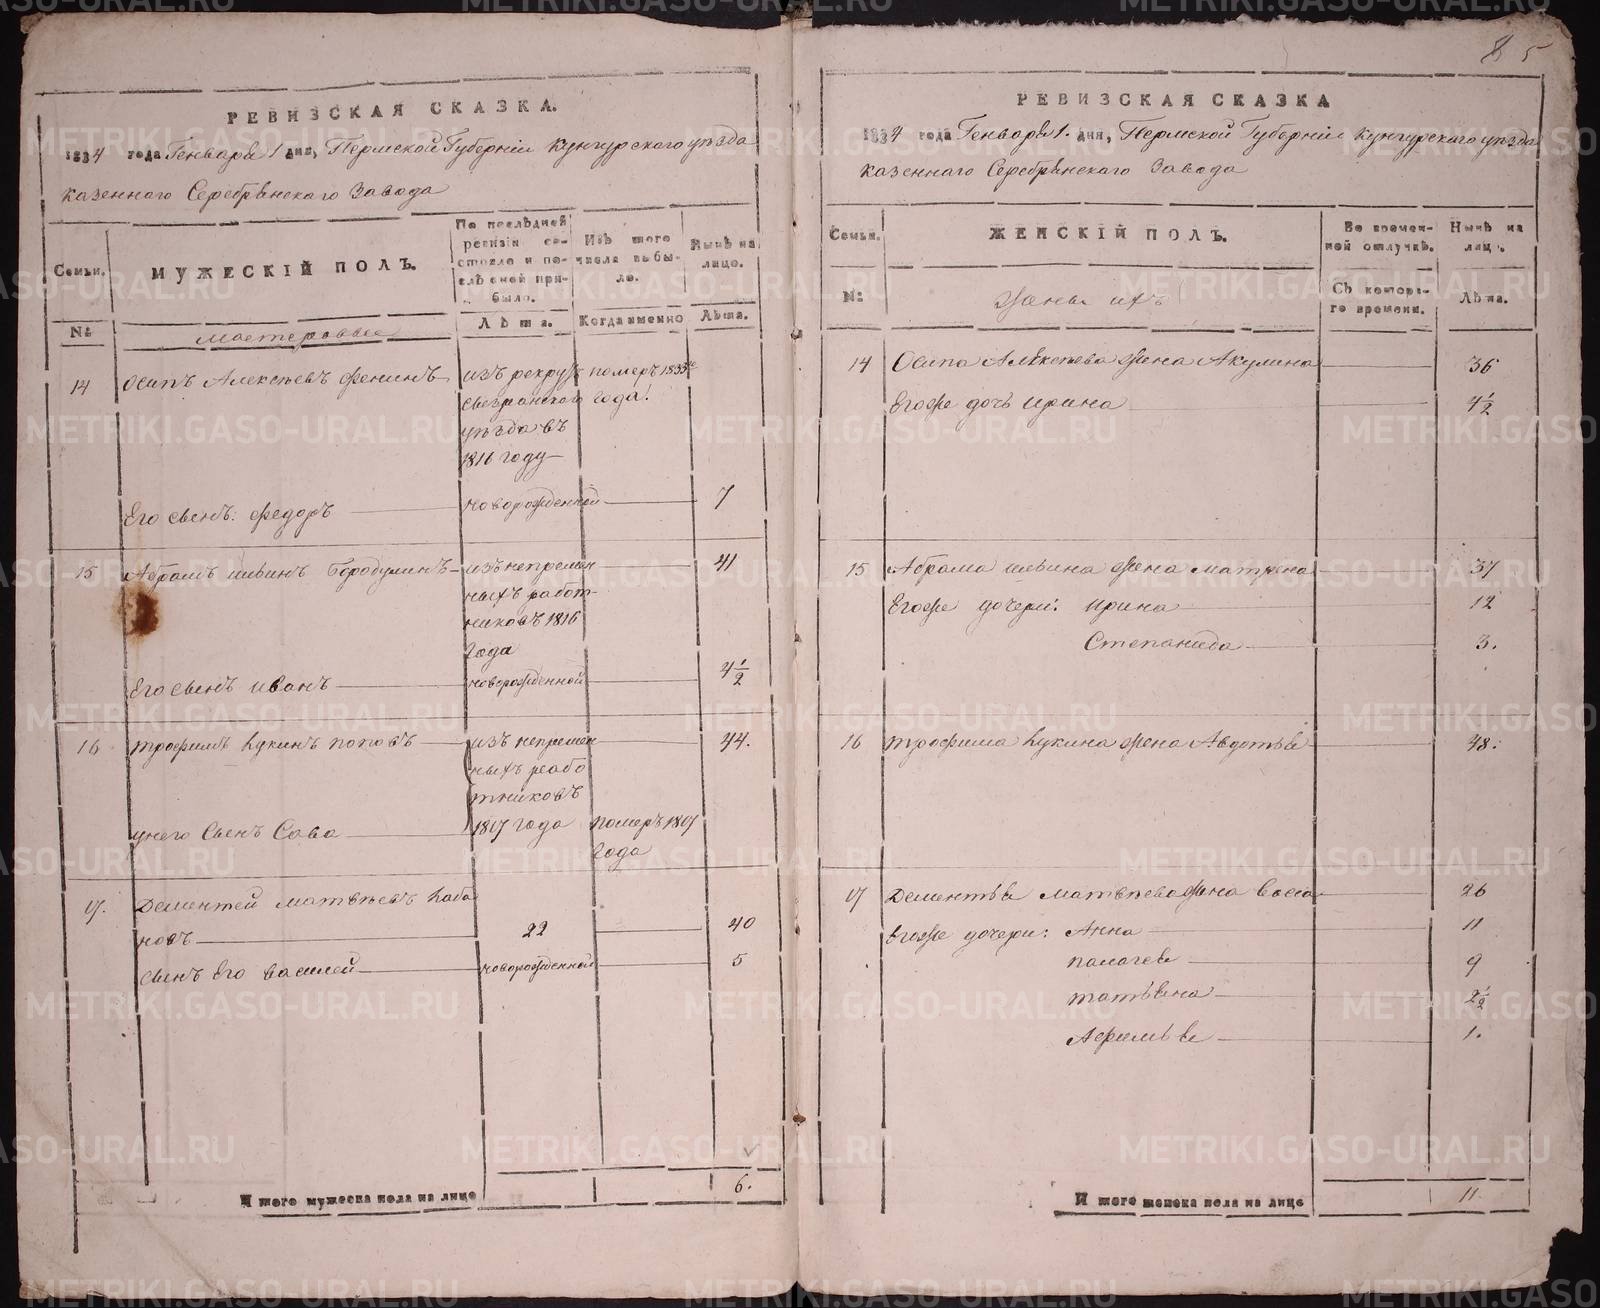 8 5
РЕВИЗСКАЯ СКАЗКА.
1834 года Генваря 1 дня, Пермской Губернiи Кунгурского уѣзда
казеннаго Серебрянскаго Завода
Семьи.
МУЖЕСКIЙ ПОЛЪ.
По послѣдней
ревизiи со-
стояло и по-
слѣ оной при-
было.
Изъ того
числа выбы-
ло.
Нынѣ на
лицо.
№
Мастеровые
Лѣта.
Когда именно
Лѣта.
14
Осипъ Алексѣевъ Фенинъ
изъ рекрутъ
померъ 1833го
уѣзда въ
года!
1816 году
Его сынъ: Федоръ
новорожденной
7
15
Абрамъ
изъ непремен
41
ныхъ работ-
никовъ 1816
года
Его сынъ Иванъ
новорожденной
4 1/2
16
Трофимъ Лукинъ Поповъ
изъ непремен
44.
ныхъ рабо
тниковъ
у него Сынъ Сава
1817 года
померъ 1817
года
17.
Дементей Матвѣевъ Каба
новъ
22
40
сынъ Его Василей
новорожденной
5
Итого мужеска пола на лицо
6.
РЕВИЗСКАЯ СКАЗКА
1834 года Генваря 1. дня, Пермской Губернiи Кунгурского уѣзда
казеннаго Серебрянскаго Завода
Семьи.
ЖЕНСКIЙ ПОЛЪ.
Во времен-
ной отлучкѣ.
Нынѣ на
лицо.
№
Жены ихъ
Съ которо-
го времени.
Лѣта.
14
Осипа Алексѣева жена Акулина
36
Егоже дочь Ирина
4 1/2
15
Абрама жена Матрена
37
Егоже дочери: Ирина
12
Степанида
3.
16
Трофима Лукина жена Авдотья
48.
17
Дементья Матвѣева жена Васса
26
Егоже дочери: Анна
11
Палагея
9
Татьяна
2 1/2
Афимья
1.
Итого женска пола на лицо
11
METRIKI.GASO-URAL.RU